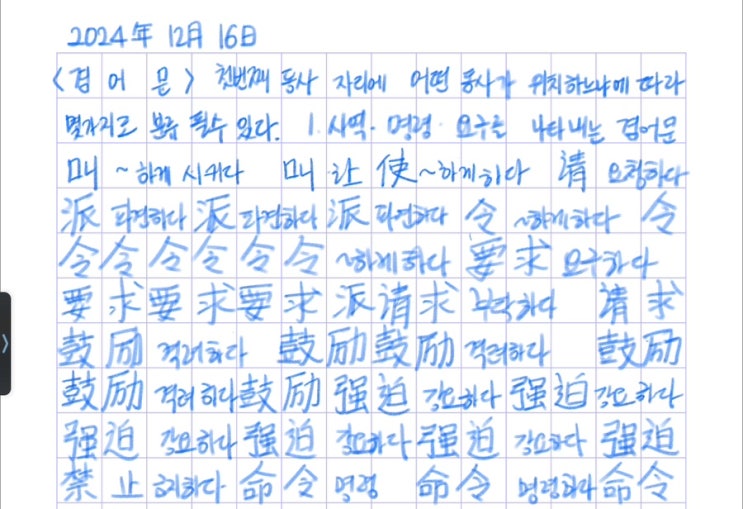 2024年 12月 16日
<겸어문> 첫번째 동사 자리에 어떤 동사가 위치하느냐에 따라
몇가지로 분류 될수 있다. 1. 사역·명령·요구를 나타내는 겸어문
叫 ~하게 시키다 叫 让 使 ~하게하다 请 요청하다
派 파견하다 派 파견하다 派 파견하다 令 ~하게하다 令
令 令 令 令 令 令 ~하게하다 要求 요구하다
要求 要求 要求 派 请求 부탁하다 请求
鼓励 격려하다 鼓励 鼓励 격려하다 鼓励
鼓励 격려하다 鼓励 强迫 강요하다 强迫 강요하다
强迫 강요하다 强迫 강요하다 强迫 강요하다 强迫
禁止 허지하다 命令 명령 命令 명령하다 命令